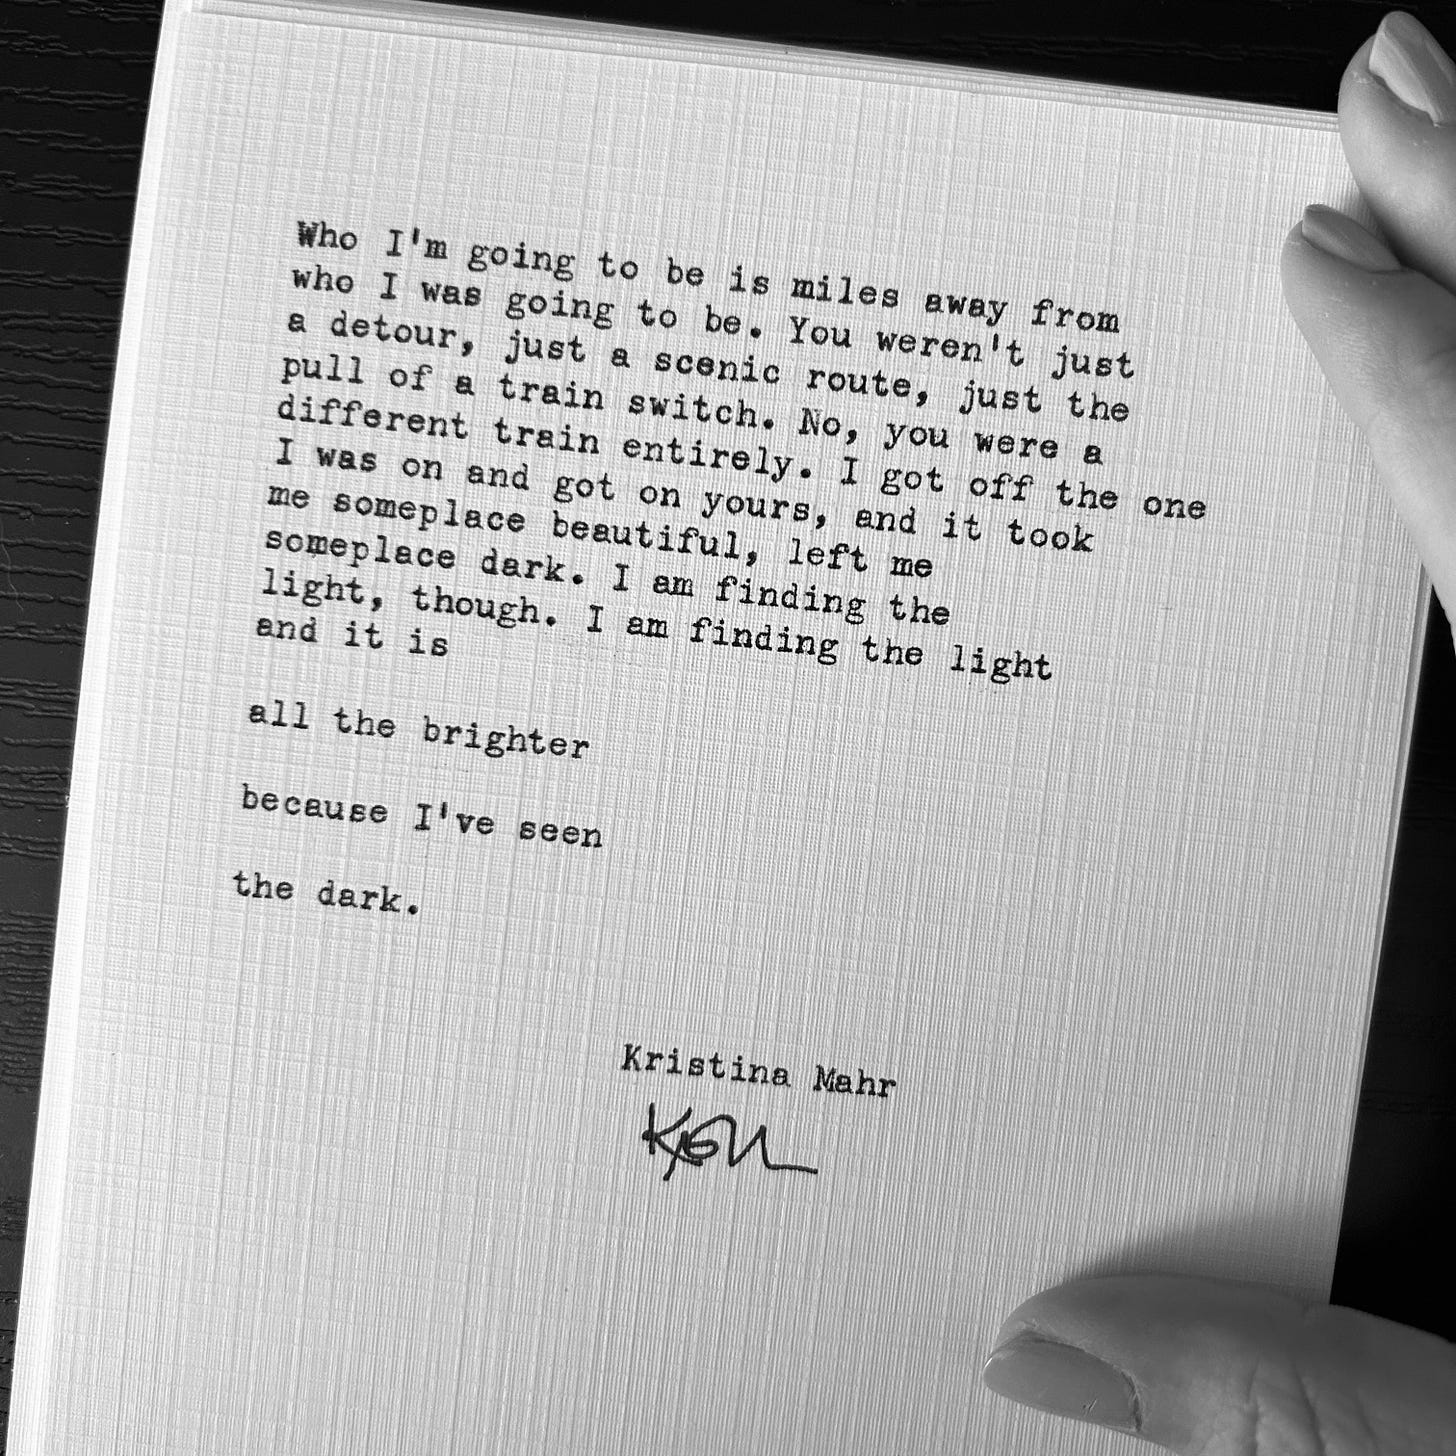 Who I'm going to be is miles away from
who I was going to be. You weren't just
a detour, just a scenic route, just the
pull of a train switch. No, you were a
different train entirely. I got off the one
I was on and got on yours, and it took
me someplace beautiful, left me
someplace dark. I am finding the
light, though. I am finding the light
and it is
all the brighter
because I've seen
the dark.
Kristina Mahr